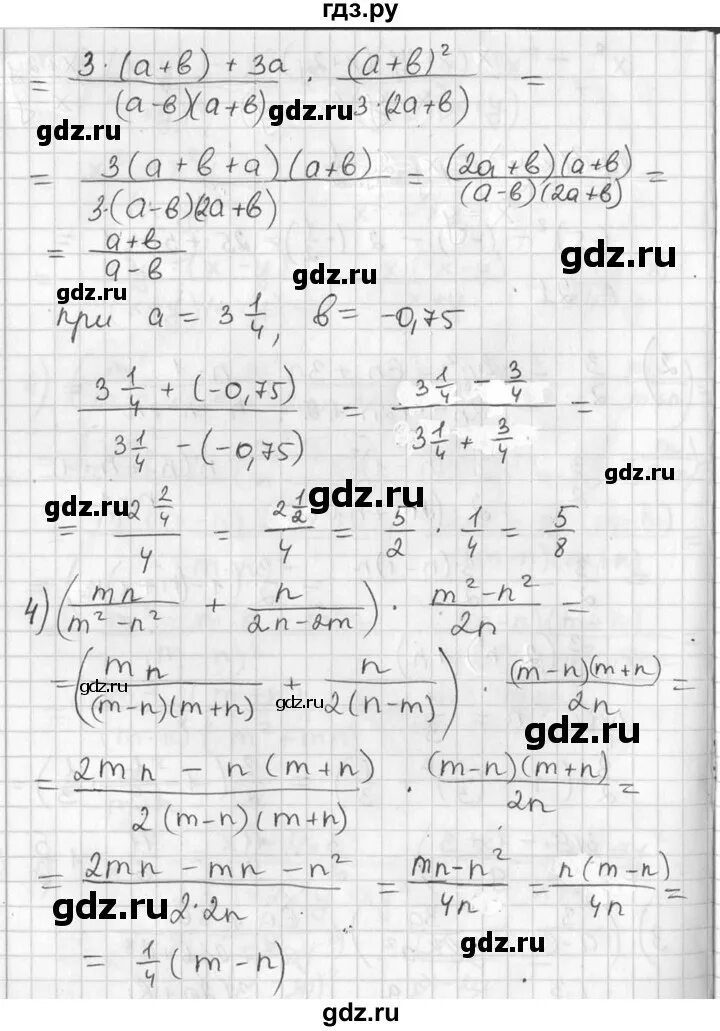 гдз.ру
= (3·(a+в) + 3a)/((a-в)(a+в)) · (a+в)²/(3·(2a+в)) =
gdz.ru
gdz.ru
= (3(a+в+a)(a+в))/(3·(a-в)(2a+в)) = ((2a+в)(a+в))/((a-в)(2a+в)) =
gdz.ru
= (a+в)/(a-в)
gdz.ru
gdz.ru
при a = 3 1/4, в = -0,75
(3 1/4 + (-0,75))/(3 1/4 - (-0,75)) = (3 1/4 - 3/4)/(3 1/4 + 3/4) =
gdz.ru
gdz.ru
gdz.ru
= (2 2/4)/4 = (2 1/2)/4 = 5/2 · 1/4 = 5/8
4) (mn/(m²-n²) + n/(2n-2m)) · (m²-n²)/2n =
= (mn/((m-n)(m+n)) + n/(2(n-m))) · ((m-n)(m+n))/2n =
gdz.ru
gdz.ru
gdz.ru
= (2mn - n(m+n))/(2(m-n)(m+n)) · ((m-n)(m+n))/2n =
= (2mn - mn - n²)/(2·2n) = (mn-n²)/4n = (n(m-n))/4n =
gdz.ru
gdz.ru
= 1/4 (m-n)
gdz.ru